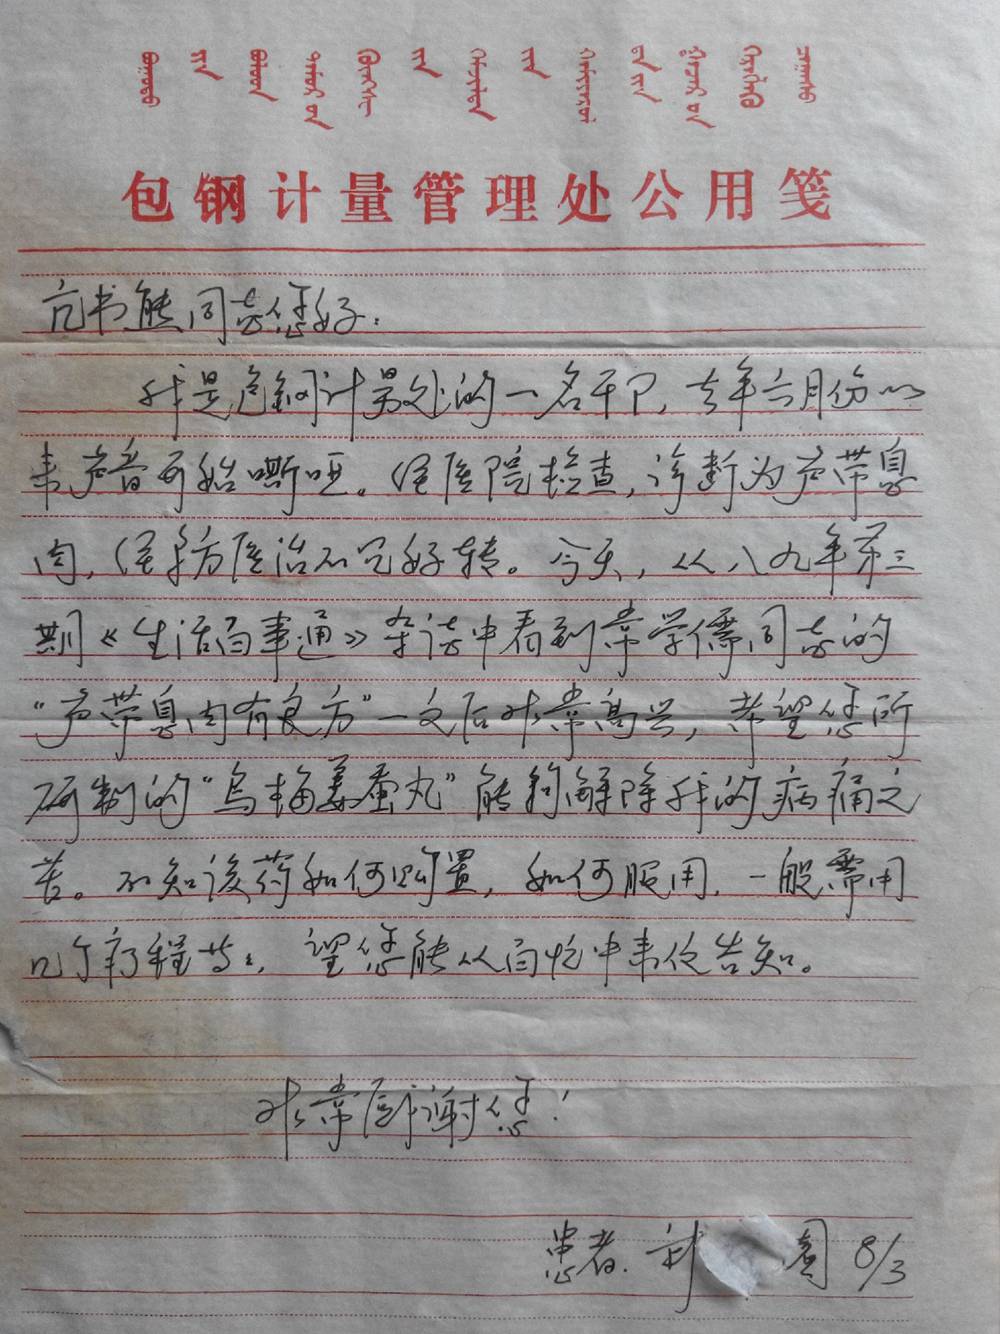 包钢计量管理处公用笺
亢书能同志您好:
我是包钢计量处的一名干部,去年六月份以
来声音开始嘶哑。经医院检查,诊断为声带息
肉,经多方医治不见好转。今天,从八九年第三
期《生活百事通》杂志中看到常学儒同志的
“声带息肉有良方”一文后非常高兴,希望您所
研制的“乌梅姜蚕丸”能够解除我的病痛之
苦。不知该药如何购置,如何服用,一般需用
几个疗程等等,望您能从百忙中来信告知。
非常感谢您!
患者: 8/3